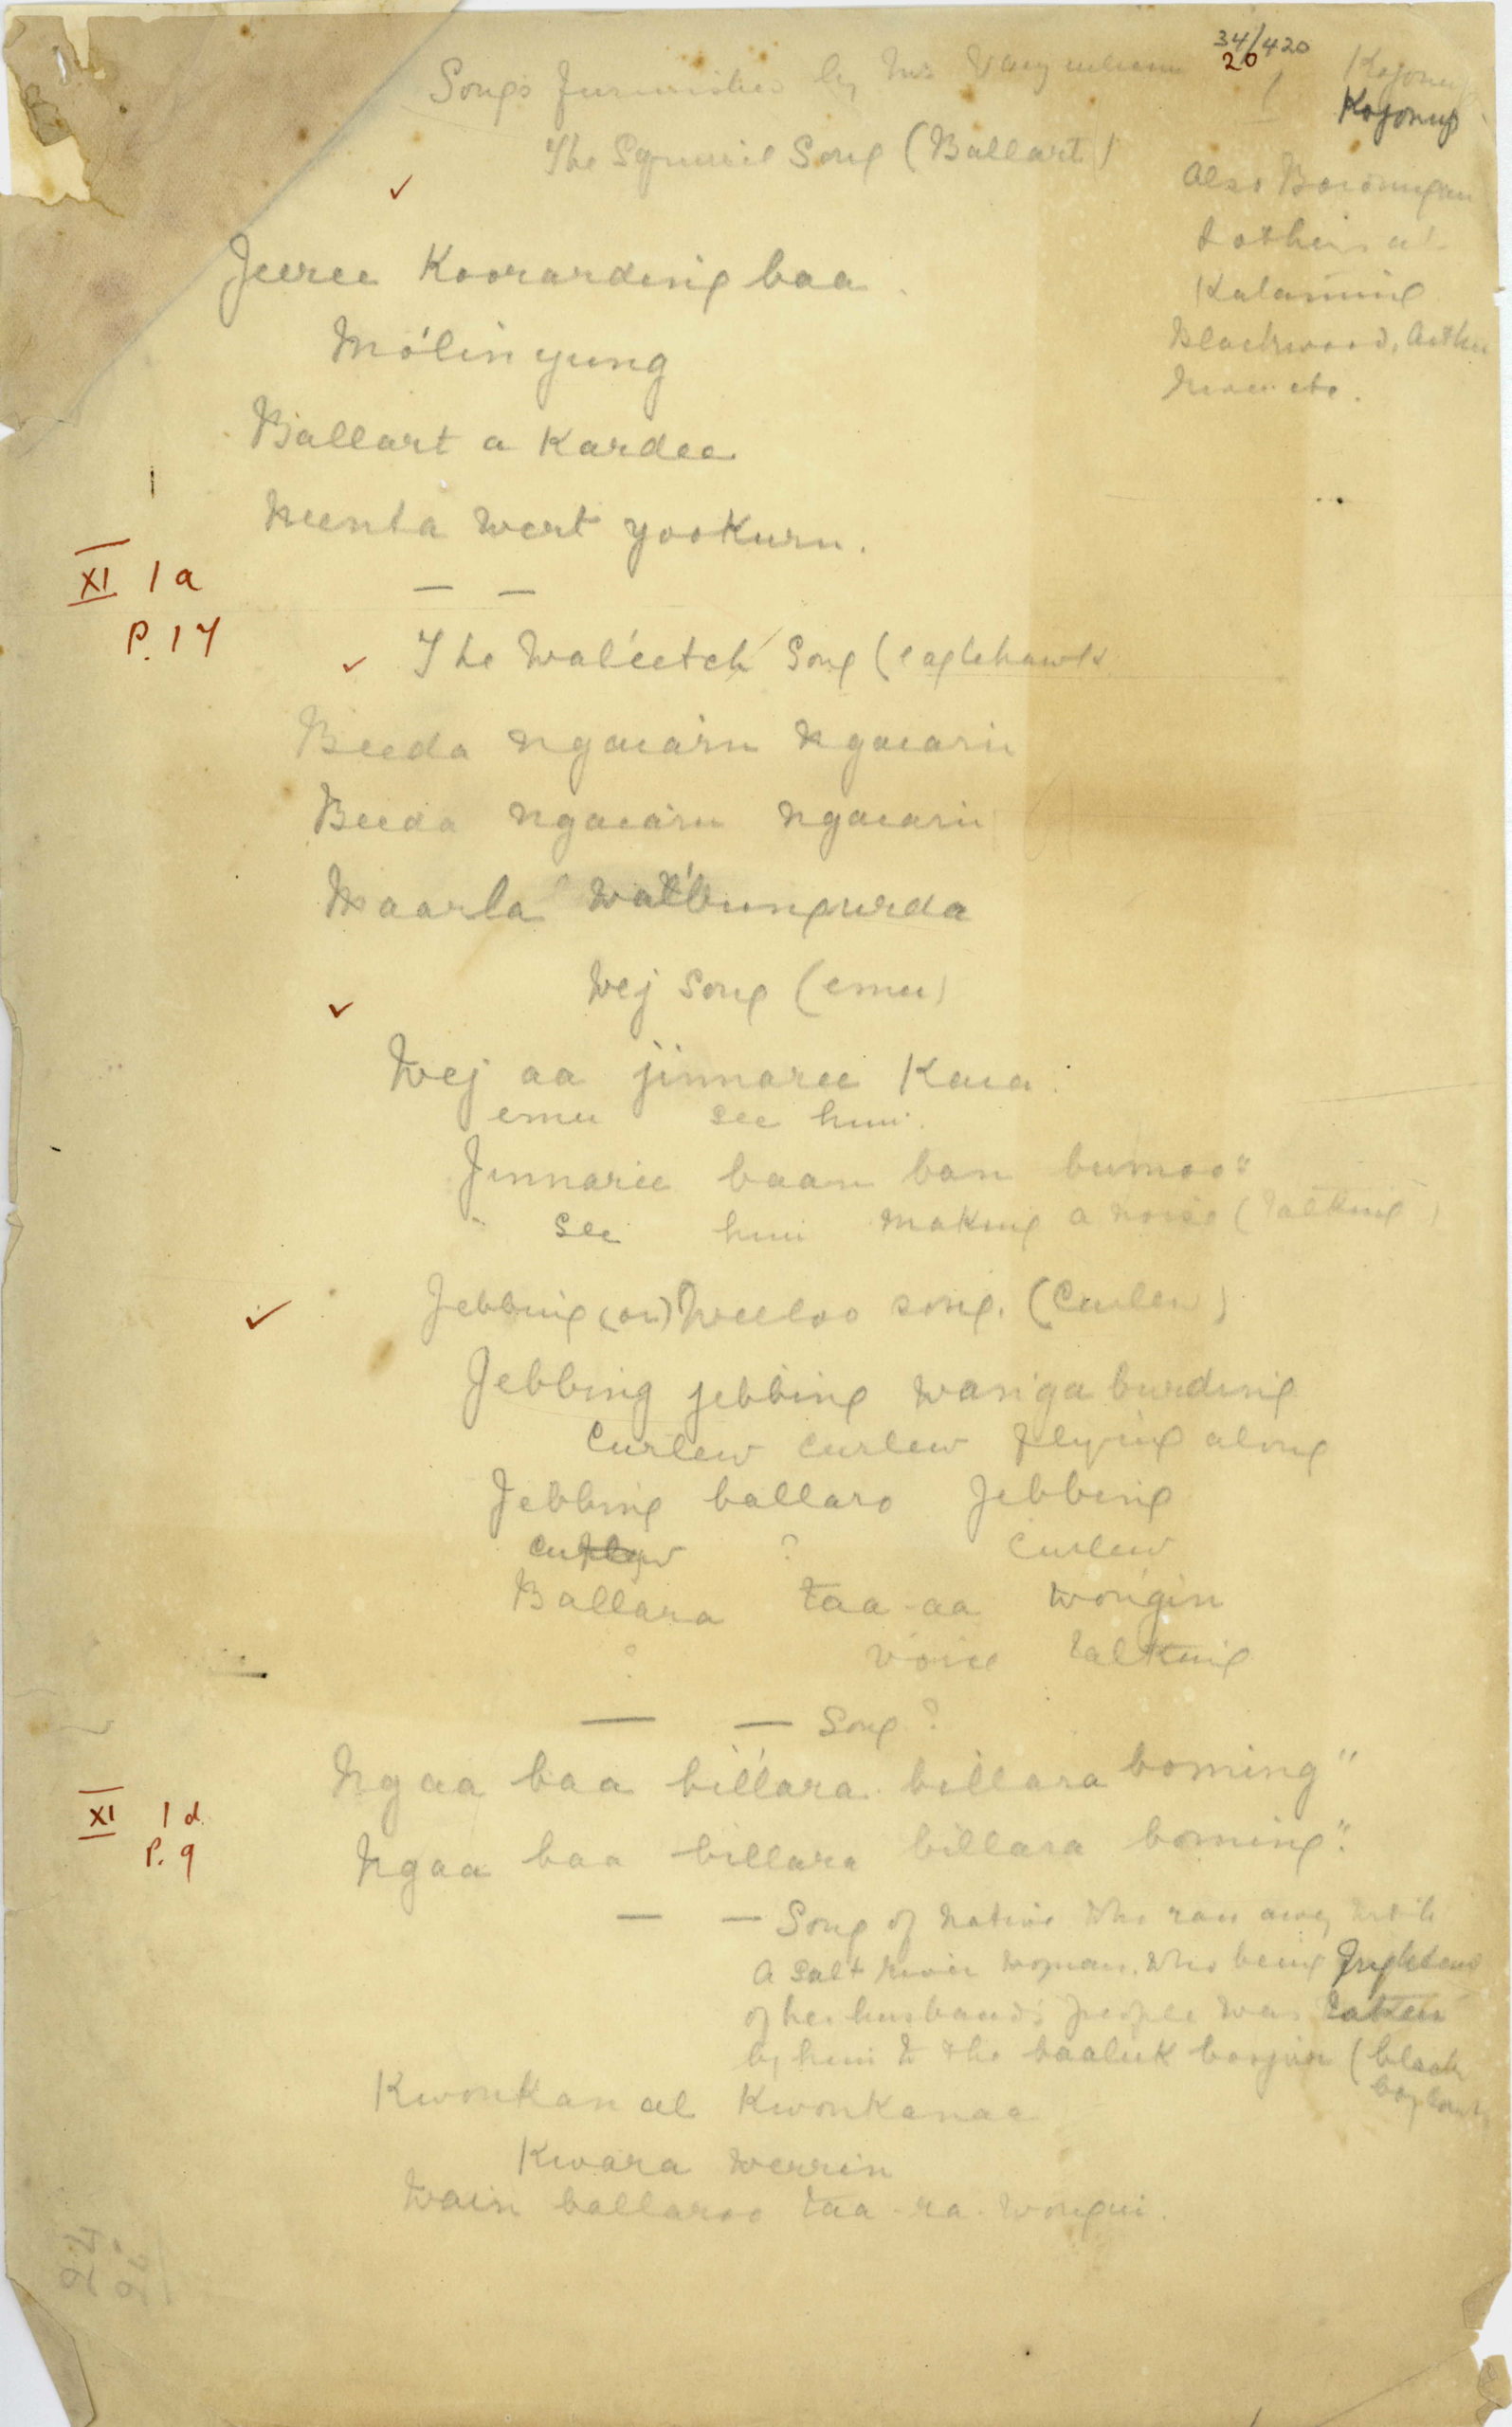 34/420
20
Kojonup
Kojonup
Songs furnished by Mrs
The Squirrel Song (Ballart)
Also
& others at
Katanning
Blackwood, Arthur
River etc.
Jeeree Koorarding baa
Mólin yung
Ballart a Kardee
Neenta wert yookurn.
XI 1a
P. 17
The Waleetch Song (eaglehawk
Beeda ngaiarn ngaiarn
Beeda ngaiarn ngaiarn
Naarla walbungurda
Wej Song (emu)
Wej aa jinnaree Kaia
emu see him.
Jinnaree baan ban bumoo"
See him making a noise (talking)
Jebbing (or) Weeloo song. (Curlew)
Jebbing jebbing waniga burding
Curlew curlew flying along
Jebbing ballaro Jebbing
Curlew ? Curlew
Ballara taa-aa wongin
? voice talking
Song?
Ngaa baa billara billara boming"
XI 1d
P. 9
Ngaa baa billara billara boming"
Song of native who ran away with
a Salt River woman, who being frightened
of her husband's people was taken
by him to the baaluk boojur (black
boy country
Kwonkan al Kwonkanaa
Kwara werrin
Wain ballaroo taa-ra wongin.